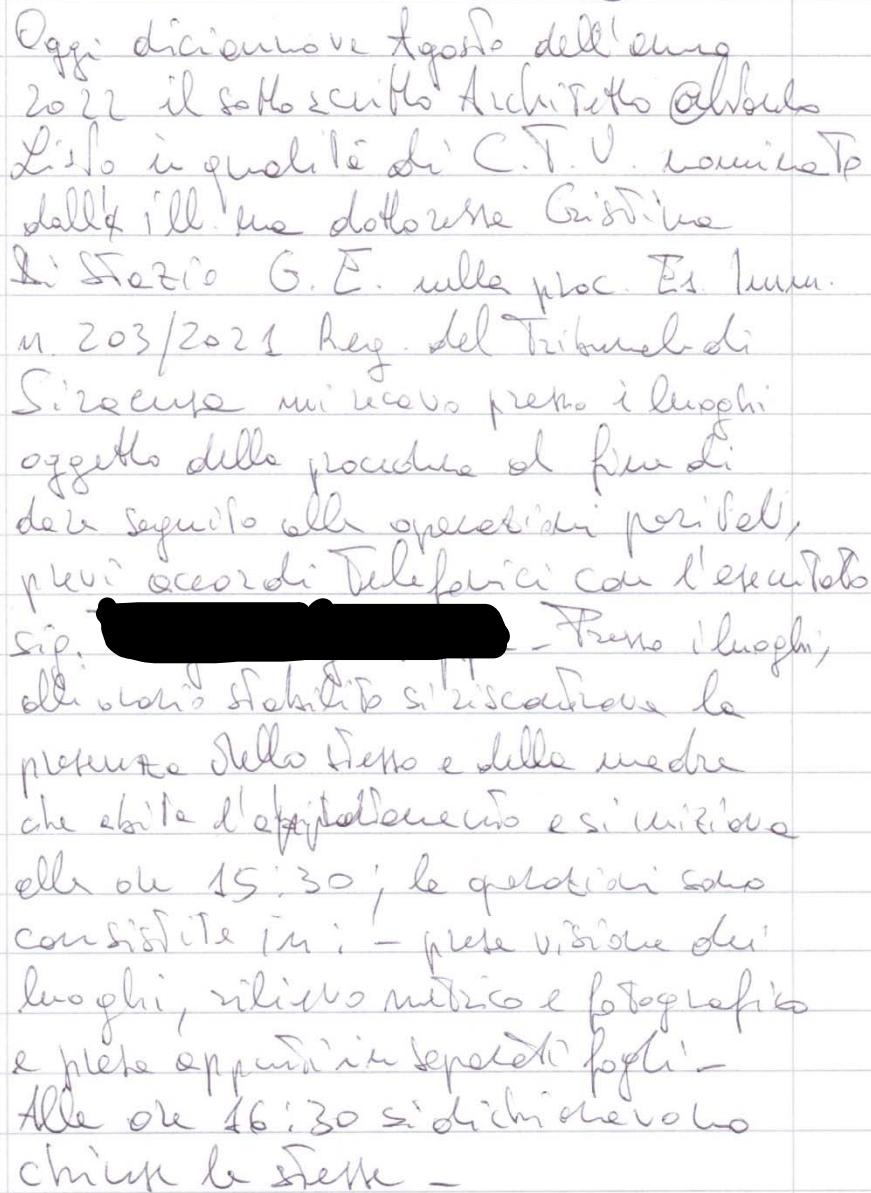 Oggi diciannove Agosto dell'anno
2022 il sottoscritto Architetto
Listo in qualità di C.T.U. nominato
dall' ill.ma dottoressa Cristina
Di Stazio G. E. nulla proc. Es. Imm.
n. 203/2021 Reg. del Tribunale di
Siracusa mi recavo presso i luoghi
oggetto della procedura al fine di
dare seguito alle operazioni peritali,
previ accordi telefonici con l'esecutato
sig. - Presso i luoghi,
all'orario stabilito si riscontrava la
presenza dello stesso e della madre
che abita l'appartamento e si iniziava
alle ore 15:30; le operazioni sono
consistite in: - presa visione dei
luoghi, rilievo metrico e fotografico
e presa appunti in separati fogli -
Alle ore 16:30 si dichiaravano
chiuse le stesse -